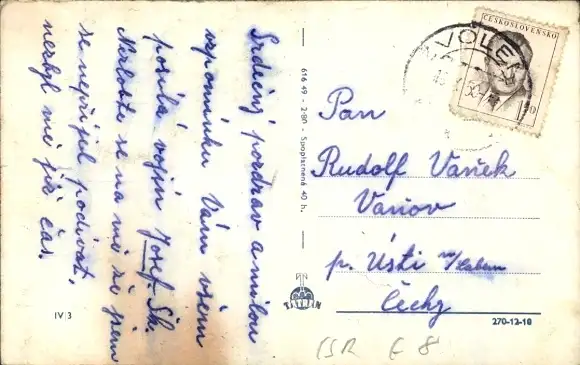 Srdečný pozdrav a milou
vzpomínku Vám všem
posílá vojín Josef Sk.
Nezlobte se na mě že jsem
se nepřijel podívat.
nezbyl mě již čas.
IV|3
616 49 - 2-80 - Spoplatnené 40 h.
TATRAN
ČESKOSLOVENSKO
VOLE
Pan
Rudolf Vaněk
Vaňov
p. Ústí n/Labem
Čechy
270-12-18
ČSR